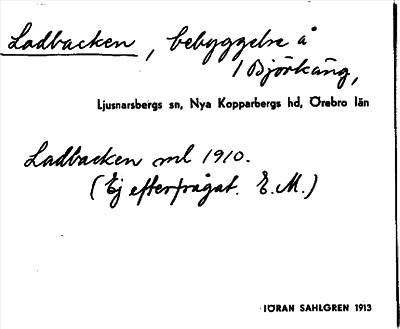 Ladbacken, bebyggelse å
1 Björkäng,
Ljusnarsbergs sn, Nya Kopparbergs hd, Örebro län
Ladbacken ml 1910.
(Ej efterfrågat. E.M.)
JÖRAN SAHLGREN 1913